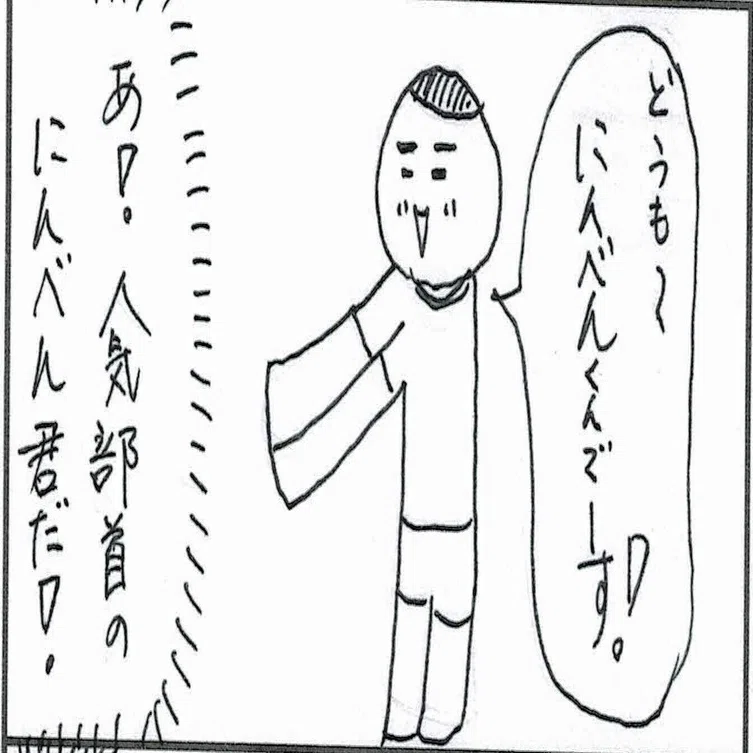 どうも〜
にんべんくんでーす!
あ!人気部首の
にんべん君だ!